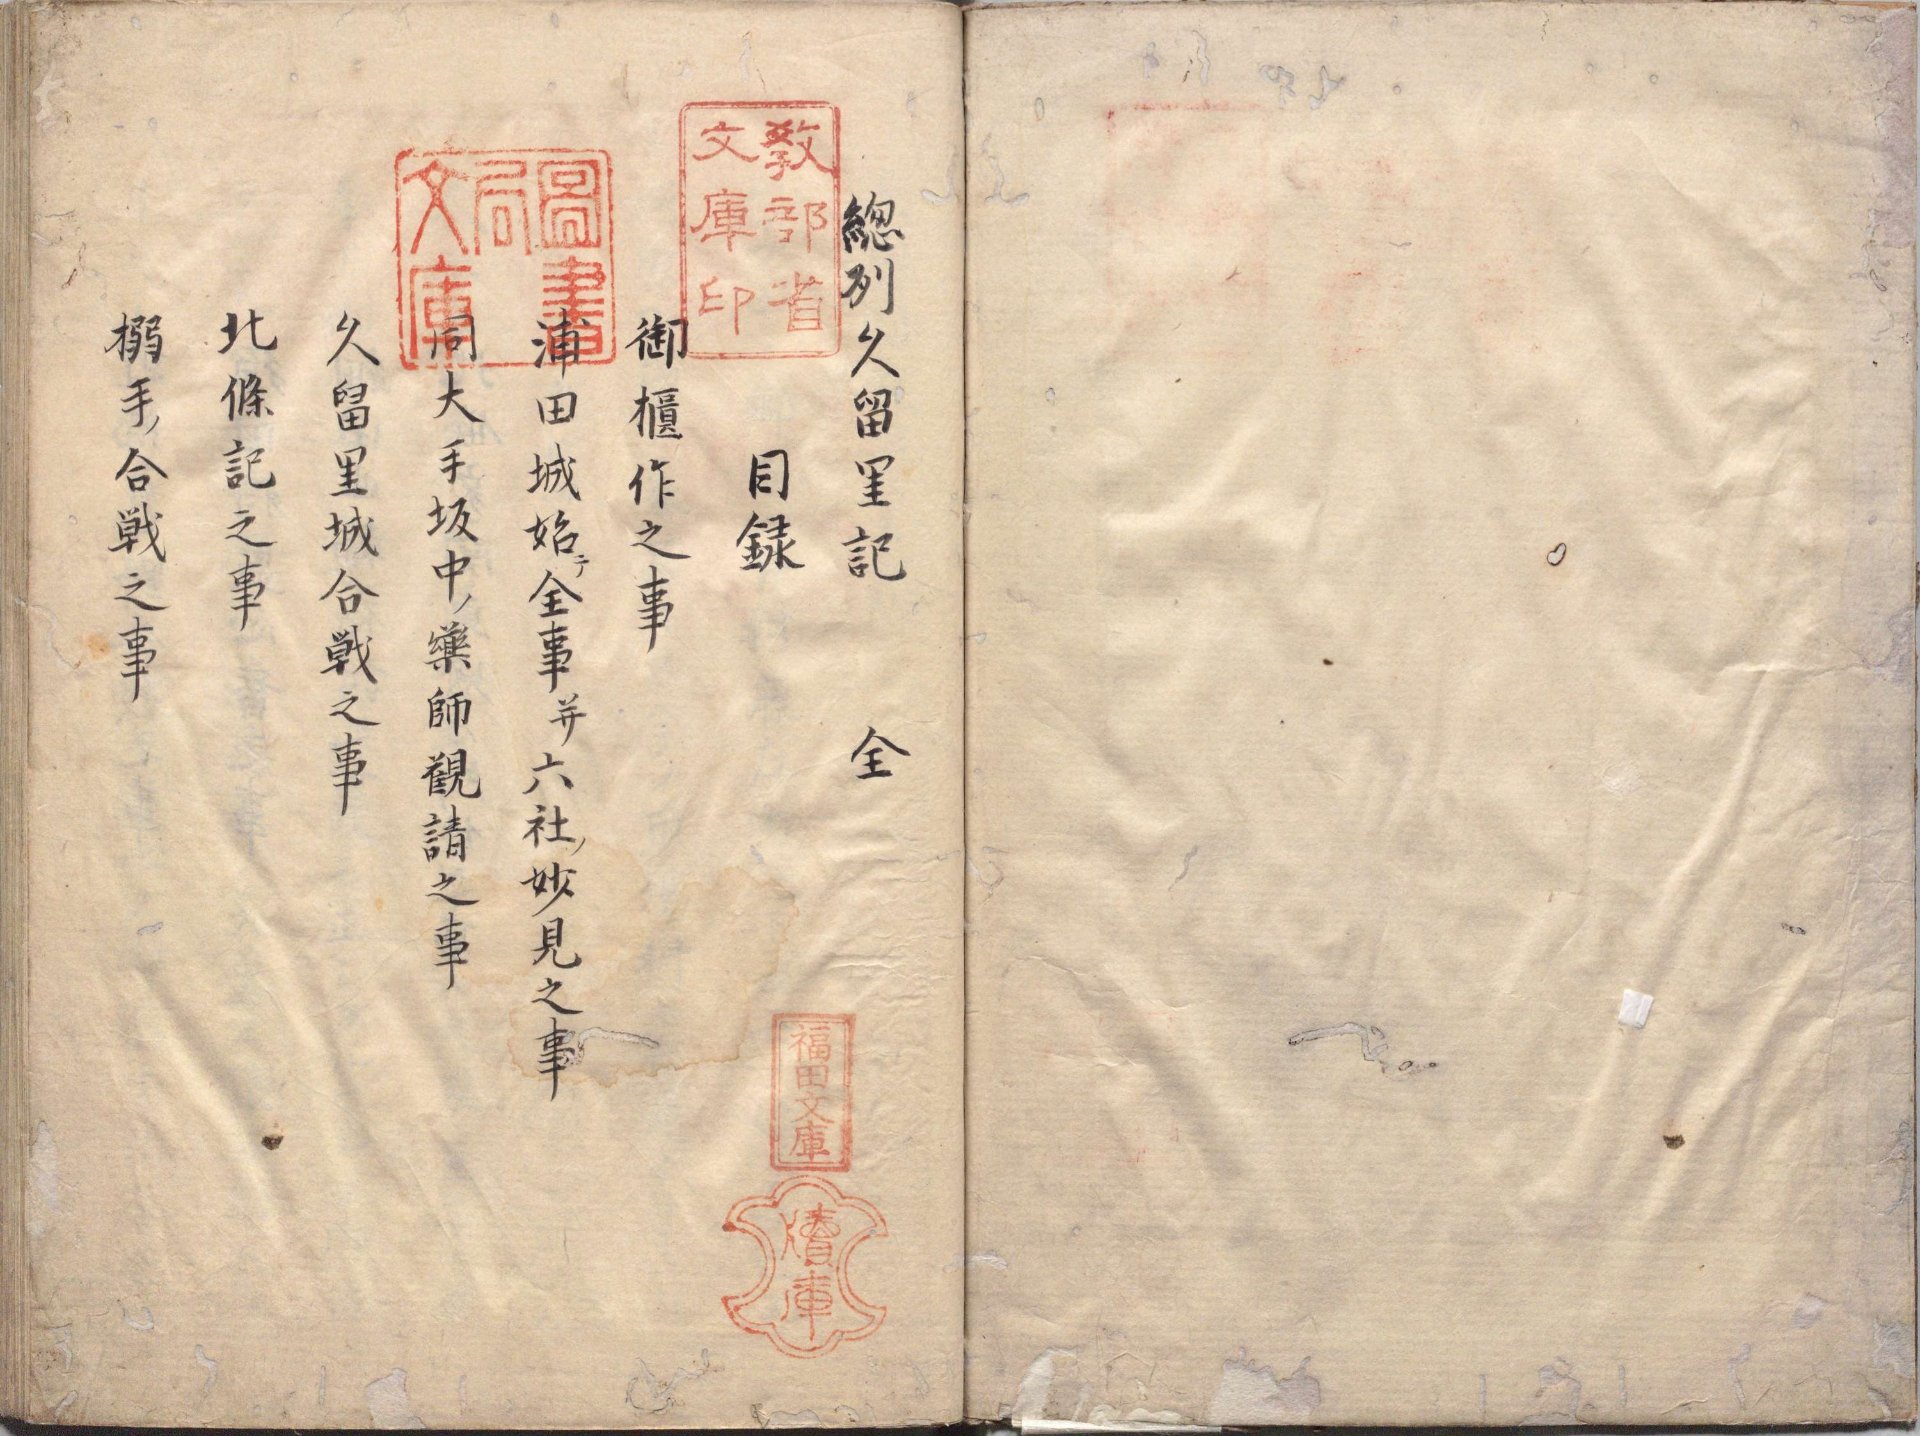 總列久留里記　全
目録
御櫃作之事
浦田城始テ全事并六社ノ妙見之事
同大手坂中ノ藥師觀請之事
久留里城合戦之事
北條記之事
搦手ノ合戦之事
教部省
文庫印
圖書
局
文庫
福田文庫
庫